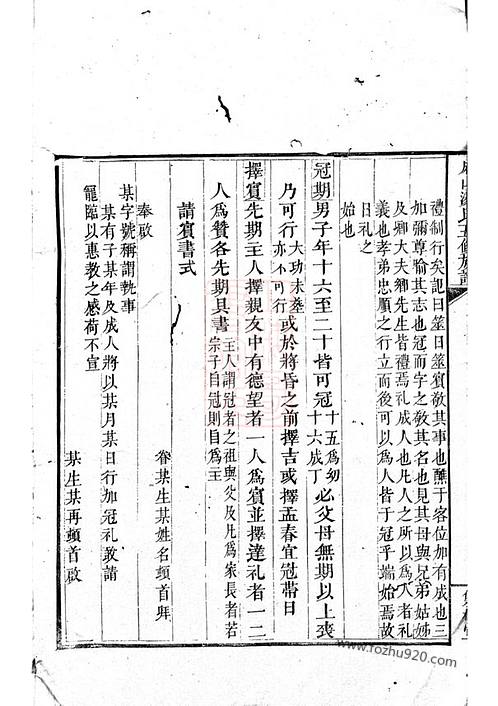 禮制行矣記曰筮日筮賓敬其事也醮于客位加有成也三
加彌尊喻其志也冠而字之敬其名也見其母與兄弟姑姊
及卿大夫鄉先生皆禮焉禮成人也凡人之所以爲人者禮
義也孝弟忠順之行立而後可以爲人皆于冠乎端始焉故
曰禮之
始也
冠期男子年十六至二十皆可冠十五爲幼十六成丁必父母無期以上喪
乃可行大功未塟亦不可行或於將昏之前擇吉或擇孟春宜冠帶日
擇賓先期主人擇親友中有德望者一人爲賓並擇達禮者一二
人爲贊各先期具書主人謂冠者之祖與父及凡爲家長者若宗子自冠則自爲主
請賓書式
眷某生某姓名頓首拜
奉啟
某字號稱謂執事
某有子某年及成人將以某月某日行加冠礼敢請
寵臨以惠教之感荷不宣
某生某再頓首啟
www.fozhu920.com